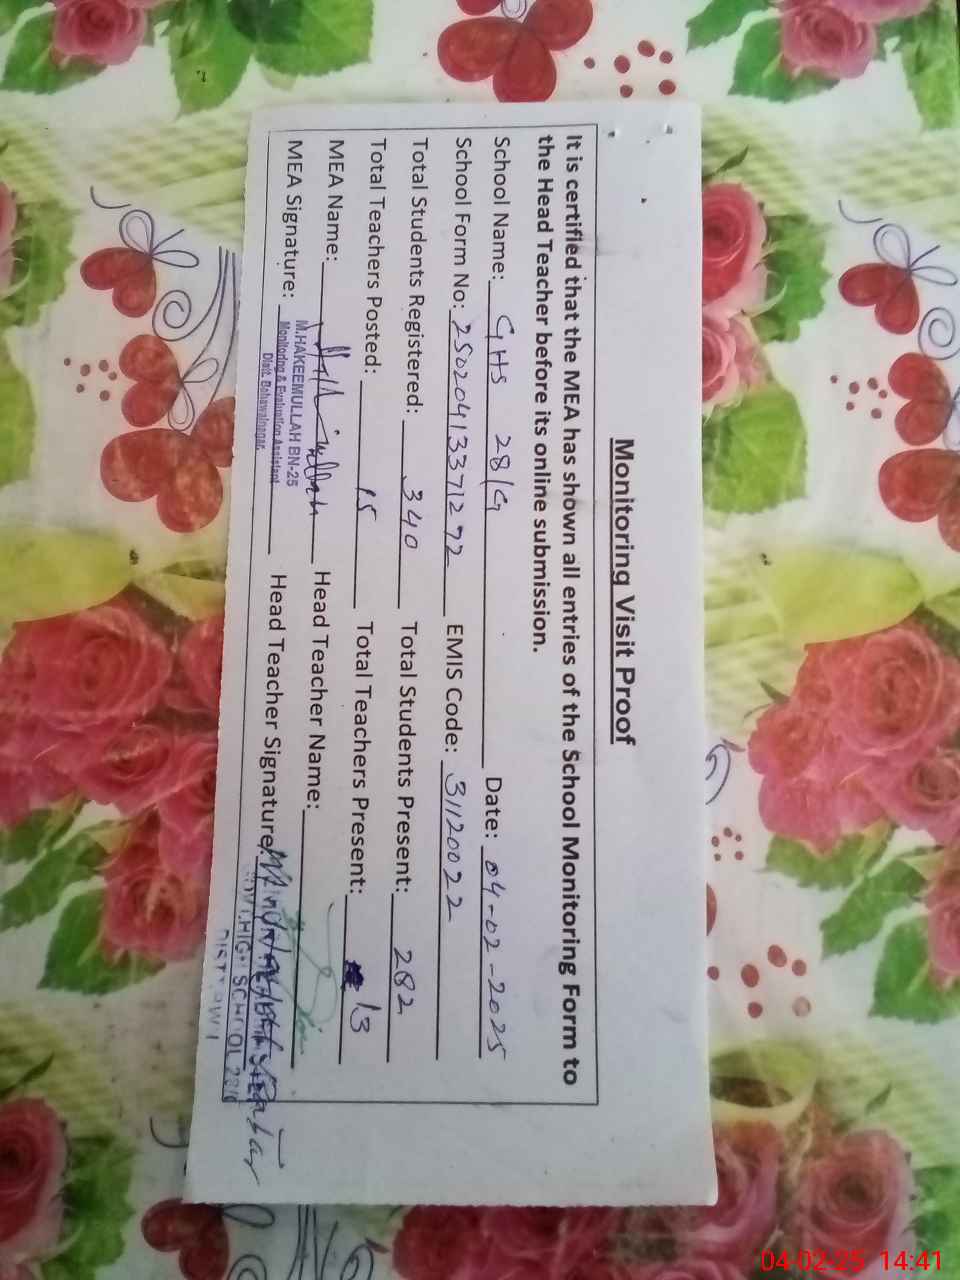 Monitoring Visit Proof
It is certified that the MEA has shown all entries of the School Monitoring Form to
the Head Teacher before its online submission.
School Name: GHS 28/G Date: 04-02-2025
School Form No: 25020413371272 EMIS Code: 31120022
Total Students Registered: 340 Total Students Present: 282
Total Teachers Posted: 15 Total Teachers Present: 13
MEA Name: Head Teacher Name:
MEA Signature: Head Teacher Signature:
M.HAKEEMULLAH BN-25
Monitoring & Evaluation Assistant
Distt. Bahawalnagar.
HIGH SCHOOL
04-02-25 14:41